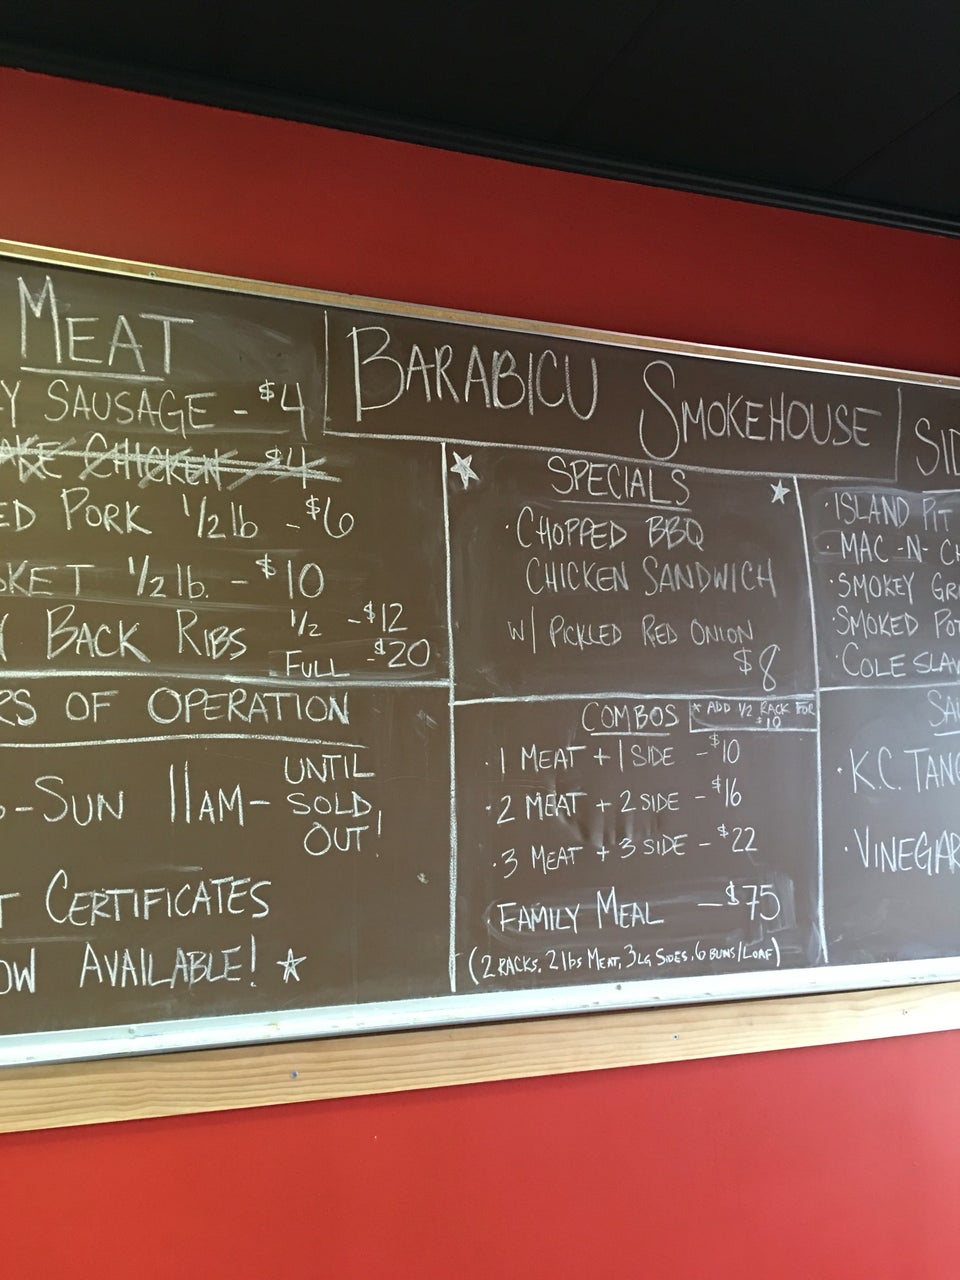 MEAT
Y SAUSAGE - $4
AKE CHICKEN $4
ED PORK 1/2 lb - $6
SKET 1/2 lb. - $10
Y BACK RIBS 1/2 - $12
FULL - $20
RS OF OPERATION
-SUN 11AM- UNTIL
SOLD
OUT!
T CERTIFICATES
OW AVAILABLE!
BARABICU SMOKEHOUSE
SPECIALS
· CHOPPED BBQ
CHICKEN SANDWICH
W/ PICKLED RED ONION
$8
COMBOS
* ADD 1/2 RACK FOR
$10
· 1 MEAT + 1 SIDE - $10
· 2 MEAT + 2 SIDE - $16
· 3 MEAT + 3 SIDE - $22
· FAMILY MEAL - $75
(2 RACKS, 2 lbs MEAT, 3 LG SIDES, 6 BUNS/LOAF)
SID
· ISLAND PIT
· MAC-N-CH
· SMOKEY GR
· SMOKED POT
· COLE SLAW
SAU
· K.C. TANG
· VINEGAR